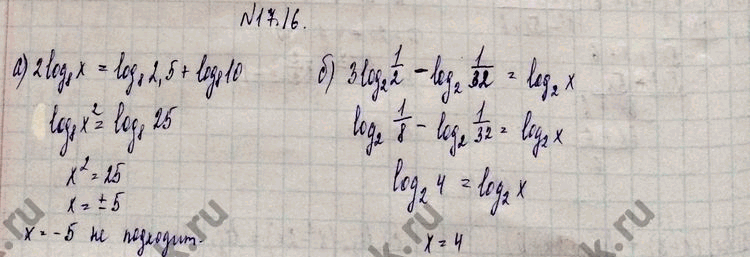 №17.16.
а) 2log₈x = log₈2,5 + log₈10
log₈x² = log₈25
x² = 25
x = ±5
x = -5 не подходит.
б) 3log₂ 1/2 - log₂ 1/32 = log₂x
log₂ 1/8 - log₂ 1/32 = log₂x
log₂4 = log₂x
x = 4
k.ru
k.ru
k.ru